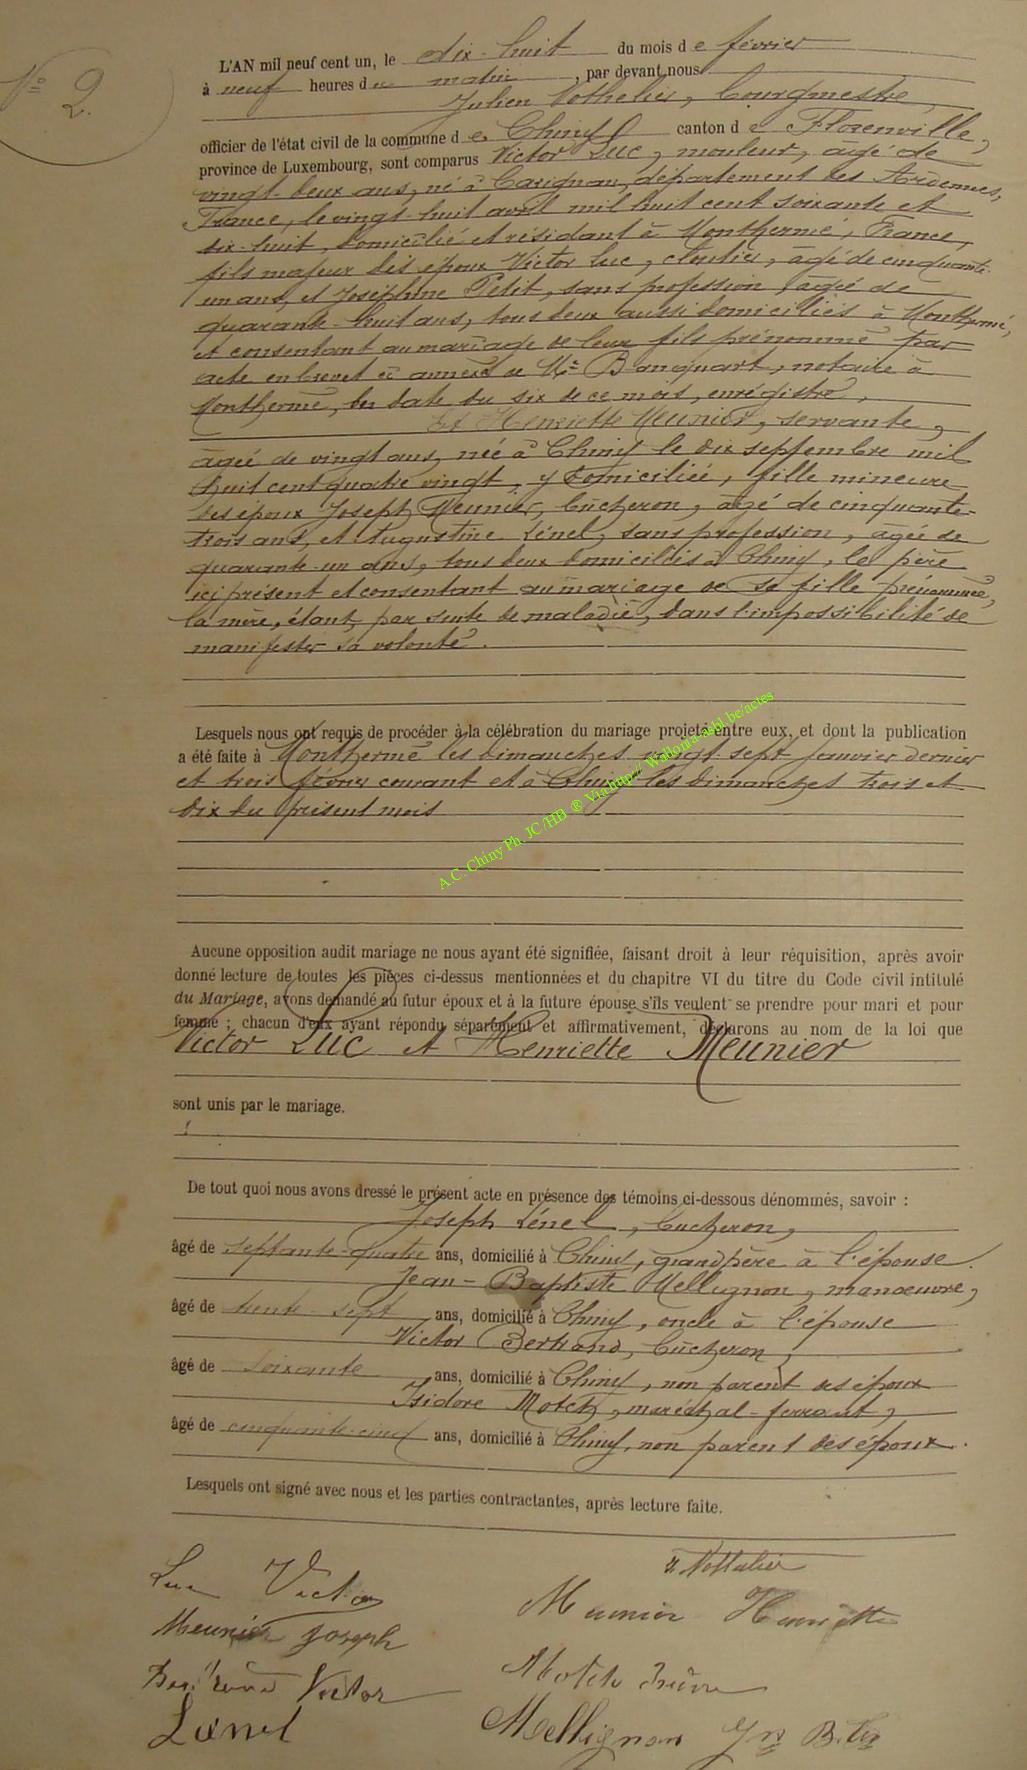 N° 2.
L'AN mil neuf cent un, le dix-huit du mois de février
à neuf heures du matin, par devant nous
Julien Nothelier, Bourgmestre,
officier de l'état civil de la commune de Chiny canton de Florenville,
province de Luxembourg, sont comparus Victor Luc, mouleur, âgé de
vingt-deux ans, né à Carignan, département des Ardennes,
France, le vingt-huit avril mil huit cent soixante et
dix-huit, domicilié et résidant à Monthermé, France,
fils majeur des époux Victor Luc, cloutier, âgé de cinquante-
un ans, et Joséphine Petit, sans profession, âgée de
quarante-huit ans, tous deux aussi domiciliés à Monthermé,
et consentant au mariage de leur fils prénommé par
acte en brevet ci annexé de Me Banquart, notaire à
Monthermé, en date du six de ce mois, enrégistré,
Et Henriette Meunier, servante,
âgée de vingt ans, née à Chiny le dix septembre mil
huit cent quatre vingt, y domiciliée, fille mineure
des époux Joseph Meunier, bûcheron, âgé de cinquante-
trois ans, et Augustine Lénel, sans profession, âgée de
quarante-un ans, tous deux domiciliés à Chiny, le père
ici présent et consentant au mariage de sa fille prénommée,
la mère, étant, par suite de maladie, dans l'impossibilité de
manifester sa volonté.
Lesquels nous ont requis de procéder à la célébration du mariage projeté entre eux, et dont la publication
a été faite à Monthermé les dimanches vingt-sept janvier dernier
et trois février courant et à Chiny les dimanches trois et
dix du présent mois
A.C. Chiny Ph. JC/HB ® Via http:// Wallonia-asbl.be/actes
Aucune opposition audit mariage ne nous ayant été signifiée, faisant droit à leur réquisition, après avoir
donné lecture de toutes les pièces ci-dessus mentionnées et du chapitre VI du titre du Code civil intitulé
du Mariage, avons demandé au futur époux et à la future épouse s'ils veulent se prendre pour mari et pour
femme ; chacun d'eux ayant répondu séparément et affirmativement, déclarons au nom de la loi que
Victor Luc et Henriette Meunier
sont unis par le mariage.
De tout quoi nous avons dressé le présent acte en présence des témoins ci-dessous dénommés, savoir :
Joseph Lénel, bûcheron,
âgé de septante-quatre ans, domicilié à Chiny, grand père à l'épouse.
Jean-Baptiste Mellignon, manoeuvre,
âgé de trente-sept ans, domicilié à Chiny, oncle à l'épouse
Victor Bertrand, bûcheron,
âgé de soixante ans, domicilié à Chiny, non parent des époux
Isidore Motch, maréchal-ferrant,
âgé de cinquante-cinq ans, domicilié à Chiny, non parent des époux.
Lesquels ont signé avec nous et les parties contractantes, après lecture faite.
Nothelier
Luc Victor
Meunier Henriette
Meunier Joseph
Motch
Bertrand Victor
Mellignon Jn Bte
Lénel